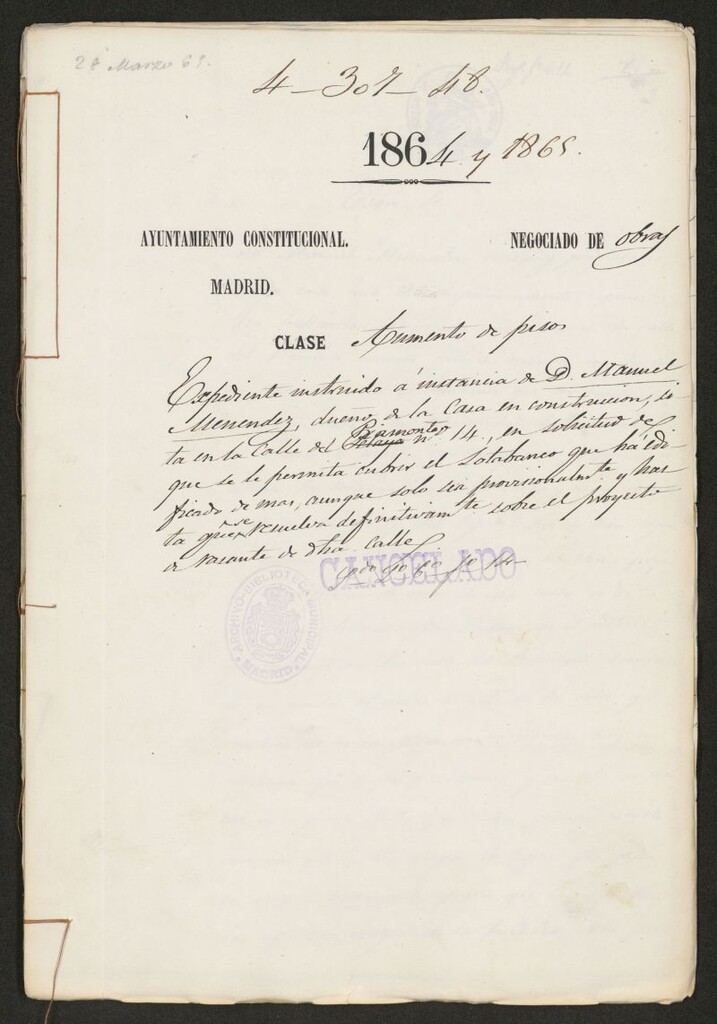 28 Marzo 65.
4-307-48.
1864 y 1865.
AYUNTAMIENTO CONSTITUCIONAL.
NEGOCIADO DE obras
MADRID.
CLASE Aumento de pisos
Expediente instruido á instancia de D. Manuel
Menendez, dueño de la Casa en construccion, si-
ta en la Calle del Piamonte nº 14., en solicitud de
que se le permita cubrir el Sotabanco que há edi-
ficado de mas, aunque solo sea provisionalmte y has-
ta que se resuelva definitivamte sobre el proyecto
de rasante de dha calle
CANCELADO
ARCHIVO-BIBLIOTECA MUNICIPAL
MADRID